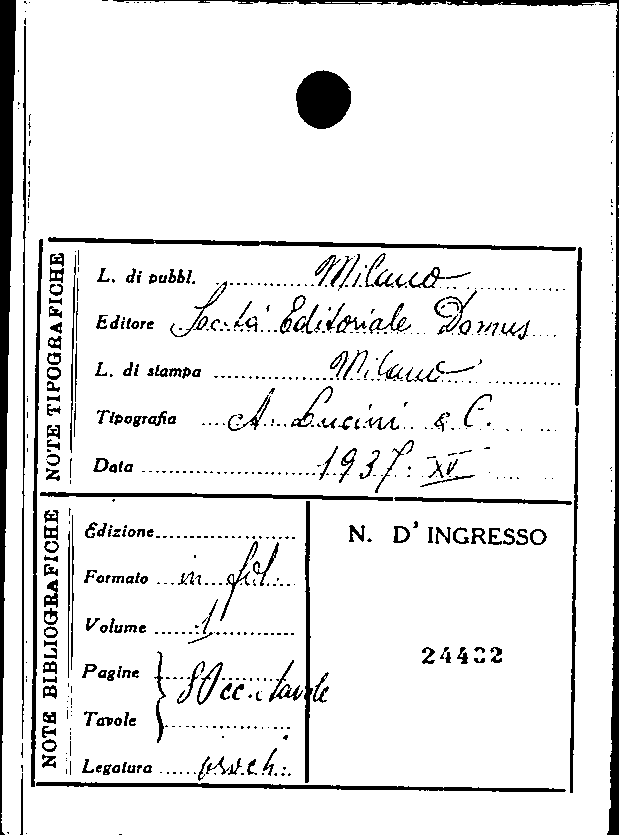 NOTE TIPOGRAFICHE
L. di pubbl. Milano
Editore Società Editoriale Domus
L. di stampa Milano
Tipografia A. Lucini & C.
Data 1937. XV
NOTE BIBLIOGRAFICHE
Edizione
Formato in fol.
Volume 1
Pagine
Tavole
Legatura
N. D' INGRESSO